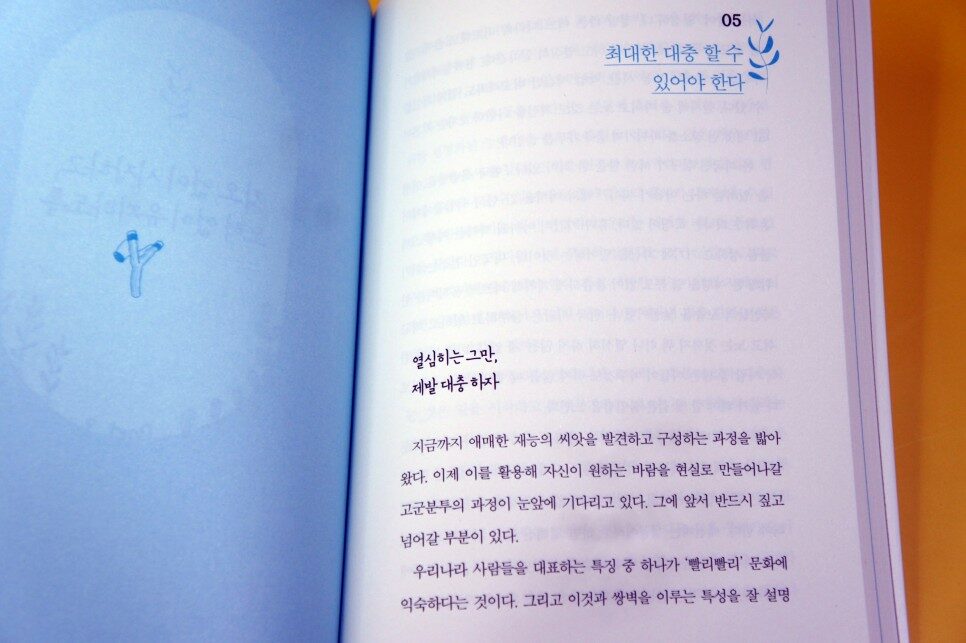 05
최대한 대충 할 수
있어야 한다
열심히는 그만,
제발 대충 하자
지금까지 애매한 재능의 씨앗을 발견하고 구성하는 과정을 밟아
왔다. 이제 이를 활용해 자신이 원하는 바람을 현실로 만들어나갈
고군분투의 과정이 눈앞에 기다리고 있다. 그에 앞서 반드시 짚고
넘어갈 부분이 있다.
우리나라 사람들을 대표하는 특징 중 하나가 '빨리빨리' 문화에
익숙하다는 것이다. 그리고 이것과 쌍벽을 이루는 특성을 잘 설명